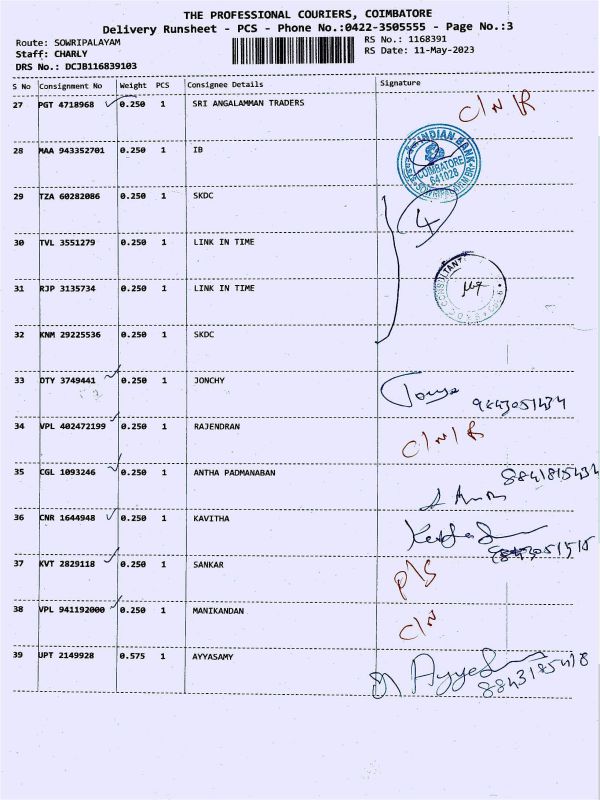 THE PROFESSIONAL COURIERS, COIMBATORE
Delivery Runsheet - PCS - Phone No.:0422-3505555 - Page No.:3
Route: SOWRIPALAYAM
RS No.: 1168391
Staff: CHARLY
RS Date: 11-May-2023
DRS No.: DCJB116839103
S No Consignment No Weight PCS Consignee Details Signature
27 PGT 4718968 0.250 1 SRI ANGALAMMAN TRADERS C/N/R
28 MAA 943352701 0.250 1 IB
INDIAN BANK
COIMBATORE
641028
29 TZA 60282086 0.250 1 SKDC
4
30 TVL 3551279 0.250 1 LINK IN TIME
31 RJP 3135734 0.250 1 LINK IN TIME
CONSULTANT
32 KNM 29225536 0.250 1 SKDC
33 DTY 3749441 0.250 1 JONCHY
9843051434
34 VPL 402472199 0.250 1 RAJENDRAN C/N/R
35 CGL 1093246 0.250 1 ANTHA PADMANABAN
8841815434
36 CNR 1644948 0.250 1 KAVITHA
37 KVT 2829118 0.250 1 SANKAR P/S
38 VPL 941192000 0.250 1 MANIKANDAN C/N
39 UPT 2149928 0.575 1 AYYASAMY
8843185418